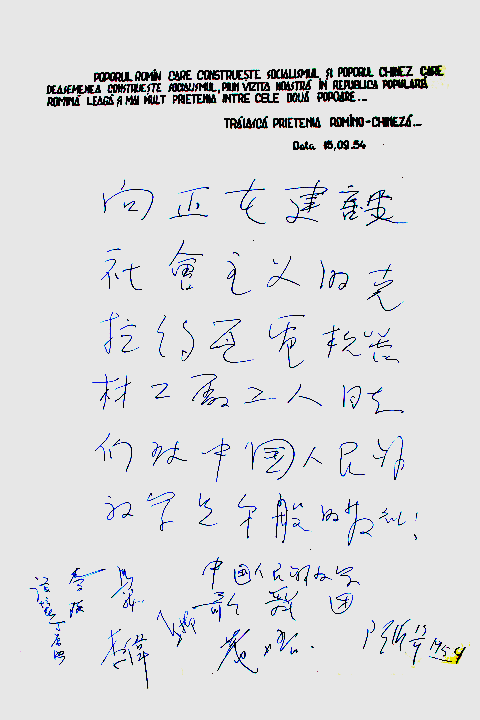 POPORUL ROMÎN CARE CONSTRUEȘTE SOCIALISMUL ȘI POPORUL CHINEZ CARE
DEASEMENEA CONSTRUEȘTE SOCIALISMUL, PRIN VIZITA NOASTRĂ ÎN REPUBLICA POPULARĂ
ROMÎNĂ LEAGĂ ȘI MAI MULT PRIETENIA ÎNTRE CELE DOUĂ POPOARE...
TRĂIASCĂ PRIETENIA ROMÎNO-CHINEZĂ...
Data 15.09.54
向正在建設
社會主义的克
拉約瓦電机器
材工廠工人同志
們致中國人民解
放军兄弟般的敬礼!
中国人民解放军
歌舞团
李偉
1954